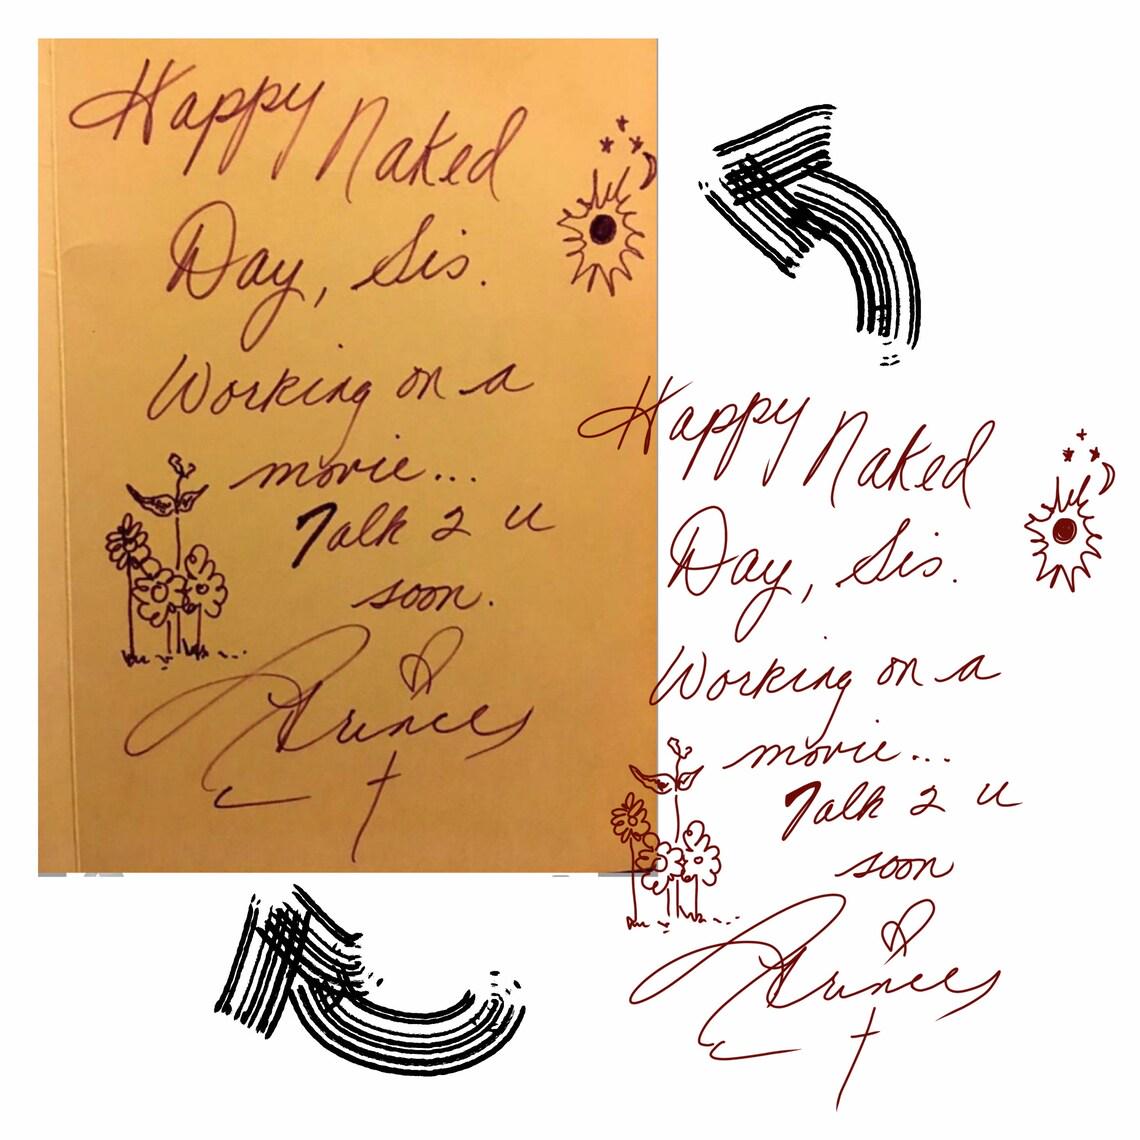 Happy Naked
Day, Sis.
Working on a
movie...
Talk 2 U
soon.
Princess
Happy Naked
Day, Sis.
Working on a
movie...
Talk 2 U
soon
Princess